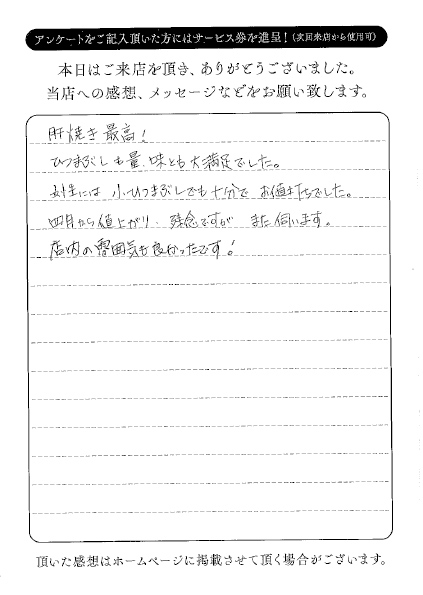 アンケートをご記入頂いた方にはサービス券を進呈！（次回来店から使用可）
本日はご来店を頂き、ありがとうございました。
当店への感想、メッセージなどをお願い致します。
肝焼き最高！
ひつまぶしも量、味とも大満足でした。
女性には 小ひつまぶしでも十分で お値打ちでした。
四月から値上がり、残念ですが また伺います。
店内の雰囲気も良かったです！
頂いた感想はホームページに掲載させて頂く場合がございます。